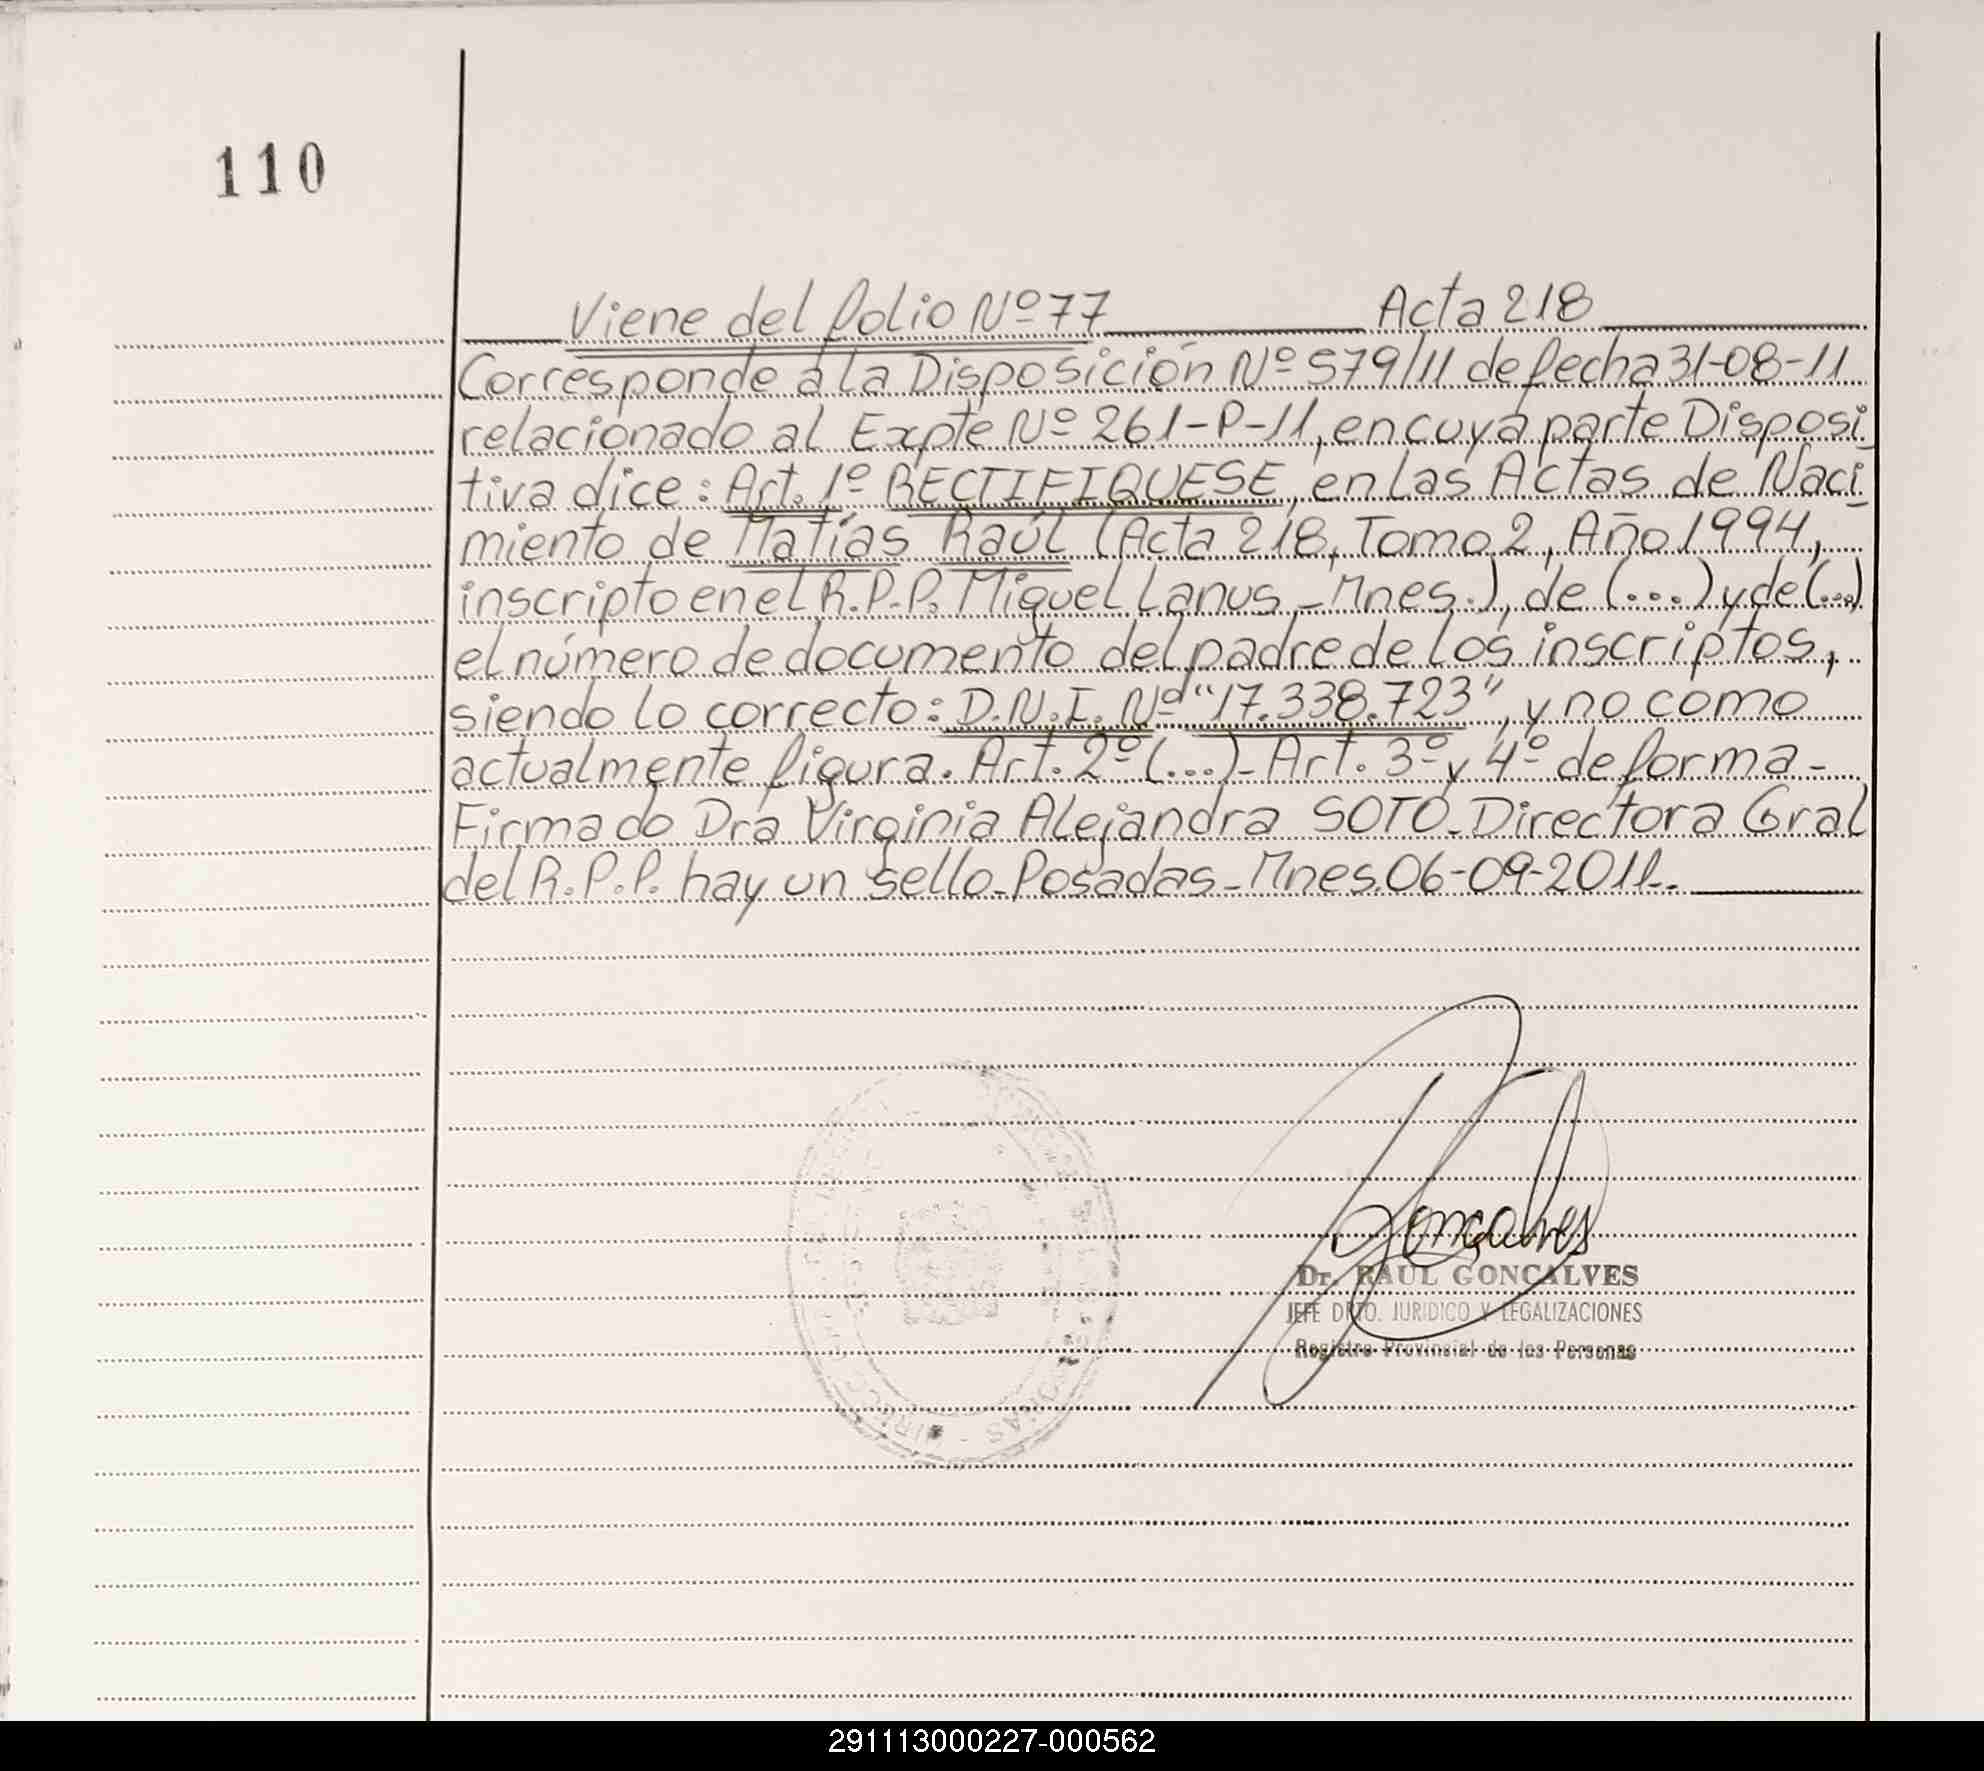 110
Viene del folio Nº 77 Acta 218
Corresponde a la Disposición Nº 579/11 de fecha 31-08-11
relacionado al Expte Nº 261-P-11, en cuya parte Disposi_
tiva dice: Art. 1º RECTIFIQUESE, en las Actas de Naci_
miento de Matías Raúl (Acta 218, Tomo 2, Año 1994,
inscripto en el R.P.P. Miguel Lanus - Mnes.), de (...) y de (...)
el número de documento del padre de los inscriptos,
siendo lo correcto: D.N.I. Nº "17.338.723", y no como
actualmente figura. Art. 2º (...)- Art. 3º y 4º de forma-
Firmado Dra Virginia Alejandra SOTO-Directora Gral
del R.P.P. hay un sello-Posadas-Mnes.06-09-2011.
Goncalves
Dr. RAUL GONCALVES
JEFE DPTO. JURIDICO Y LEGALIZACIONES
Registro Provincial de las Personas
291113000227-000562